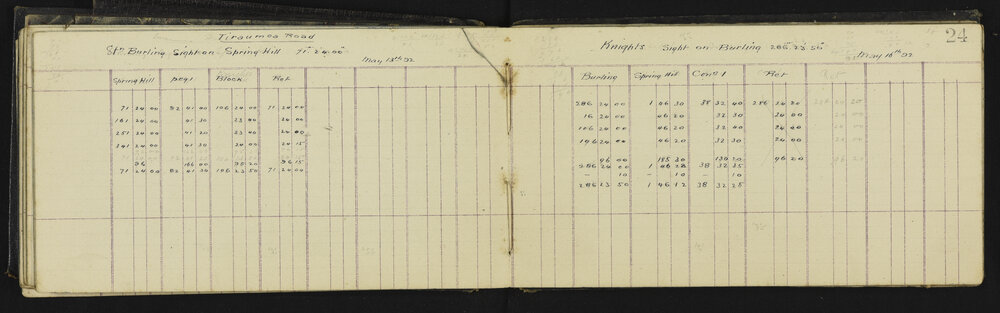 Tiraumea Road
Stn Burling Sight on Spring Hill 71° 24' 00"
May 18th 92
Spring Hill Peg 1 Block Ref
71 24 00 82 41 40 106 24 00 71 24 00
161 24 00 41 30 23 40 24 00
251 24 00 41 20 23 40 24 00
341 24 00 41 30 24 00 24 15
96 166 00 95 20 96 15
71 24 00 82 41 30 106 23 50 71 24 04
24
Knights Sight on Burling 286° 23' 50"
May 18th 92
Burling Spring Hill Cong 1 Ref Ref
286 24 00 1 46 30 38 32 40 286 24 20 286 24 20
16 24 00 46 20 32 30 24 20
106 24 00 46 20 32 40 24 00
196 24 00 46 20 32 30 24 00
96 00 185 30 130 20 96 20
286 24 00 1 46 22 38 32 35
- 10 - 10 - 10
286 23 50 1 46 12 38 32 25